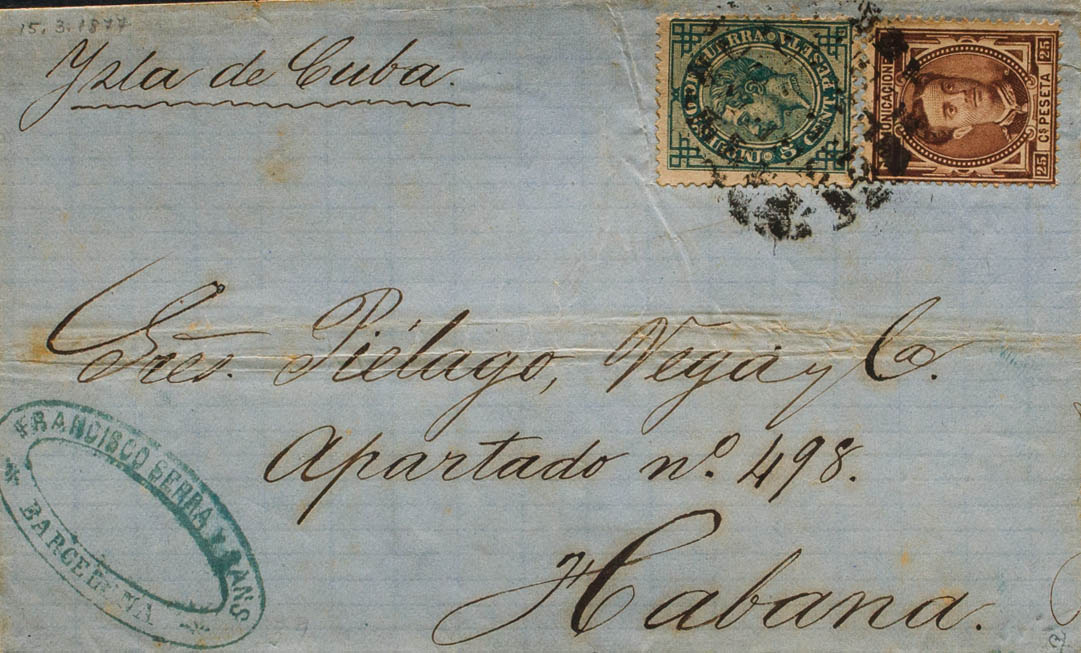 15. 3. 1877
Ysla de Cuba.
IMPTO DE GUERRA
5 CENTS PESETA
COMUNICACIONES
25 CS PESETA 25
Sres. Piélago, Vega y Ca.
Apartado no. 498.
Habana.
FRANCISCO SERRA Y SANS
BARCELONA